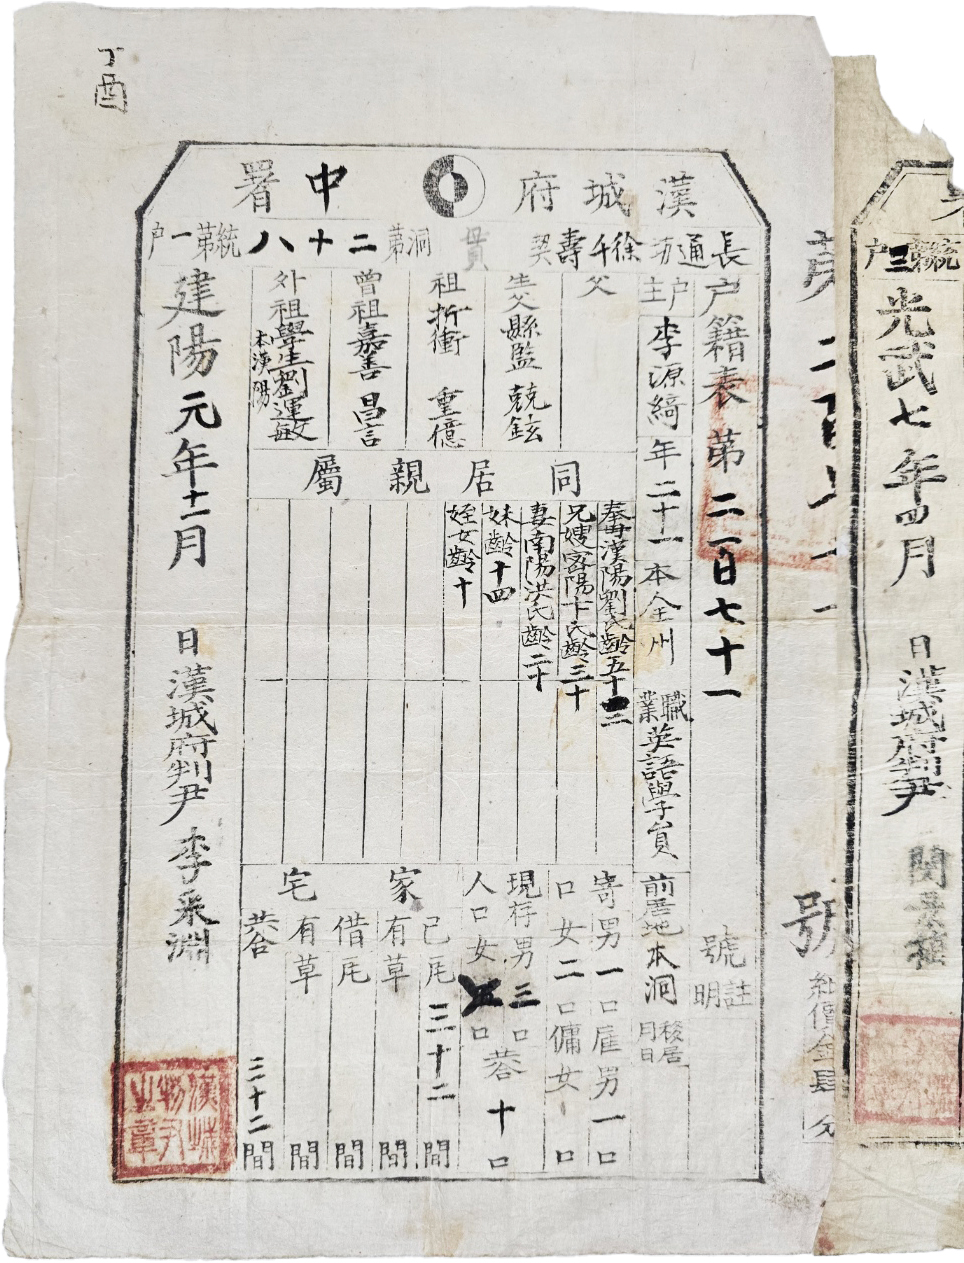 丁酉
漢城府 中署
長通坊 徐千壽契 貫 洞第二十八統第一戶
戶籍表 第二百七十一號
註明
戶主 李源綺 年二十一 本全州 職業 英語學員 前居地 本洞 移居月日
父
生父 縣監 兢鉉
祖 折衝 重億
曾祖 嘉善 昌言
外祖 學生劉運敏 本漢陽
同居親屬
奉母漢陽劉氏齡五十二
兄嫂密陽卞氏齡三十
妻南陽洪氏齡二十
妹齡十四
姪女齡十
寄口 男一口 女二口
雇男一口 傭女 口
現存人口 男三口 女 口 共十口
家宅
己有 瓦三十二間
有 草 間
借 瓦 間
有 草 間
共合 三十二間
建陽元年十一月 日 漢城府判尹 李采淵
漢城判尹之章
第二百七十一號
紙價金 分
統第三戶
光武七年四月 日 漢城府判尹 閔景植